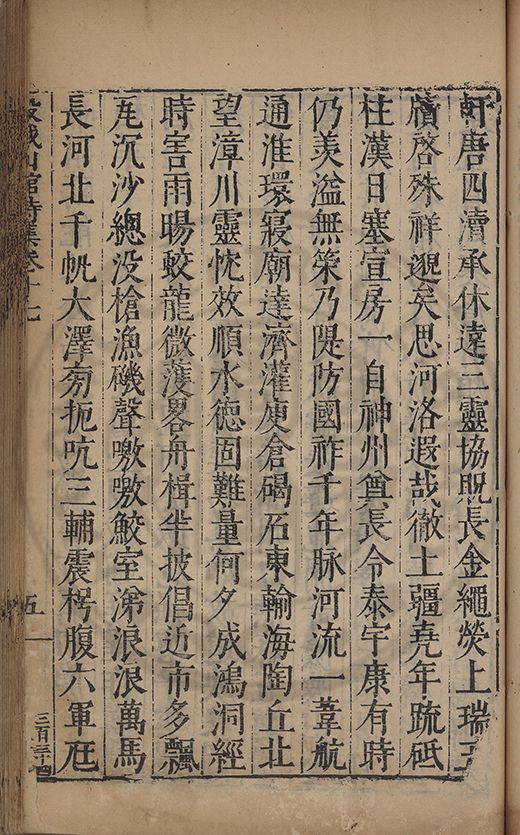 軒唐四瀆承休遠三靈協貺長金繩熒上瑞玉
牘啓殊祥邈矣思河洛遐哉徹土疆堯年疏砥
柱漢日塞宣房一自神州奠長令泰宇康有時
仍羡溢無策乃隄防國祚千年脉河流一葦航
通淮環寢廟達濟灌庾倉碣石東輸海陶丘北
望漳川靈忱效順水德固難量何夕成鴻洞經
時害雨暘蛟龍微䕶畧舟楫半披倡近市多飄
瓦沉沙總没槍漁磯聲嗷嗷鮫室涕浪浪萬馬
長河北千帆大澤旁扼吭三輔震枵腹六軍尫
城山館詩集卷十七
五
三百三十四